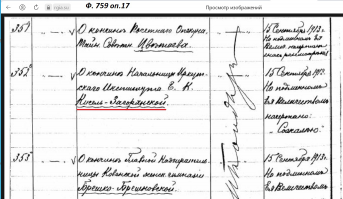 Ф. 759 оп.17
Просмотр изображений
351
О кончине Почетного Опекуна,
Тайн. Советн. Цветаева.
15 Сентября 1913 г.
На подлинном Ея
352
О кончине Начальницы Иркут-
скаго Института Е. К.
Кисель-Загорянской.
15 Сентября 1913.
На подлинном
Ея Величеством
начертано:
Сожалею.
353
О кончине Главной Надзиратель-
ницы Казанской женск. гимназии
Брешко-Брешковской.
15 Сентября 1913 г.
На подлинном
Ея Величеством